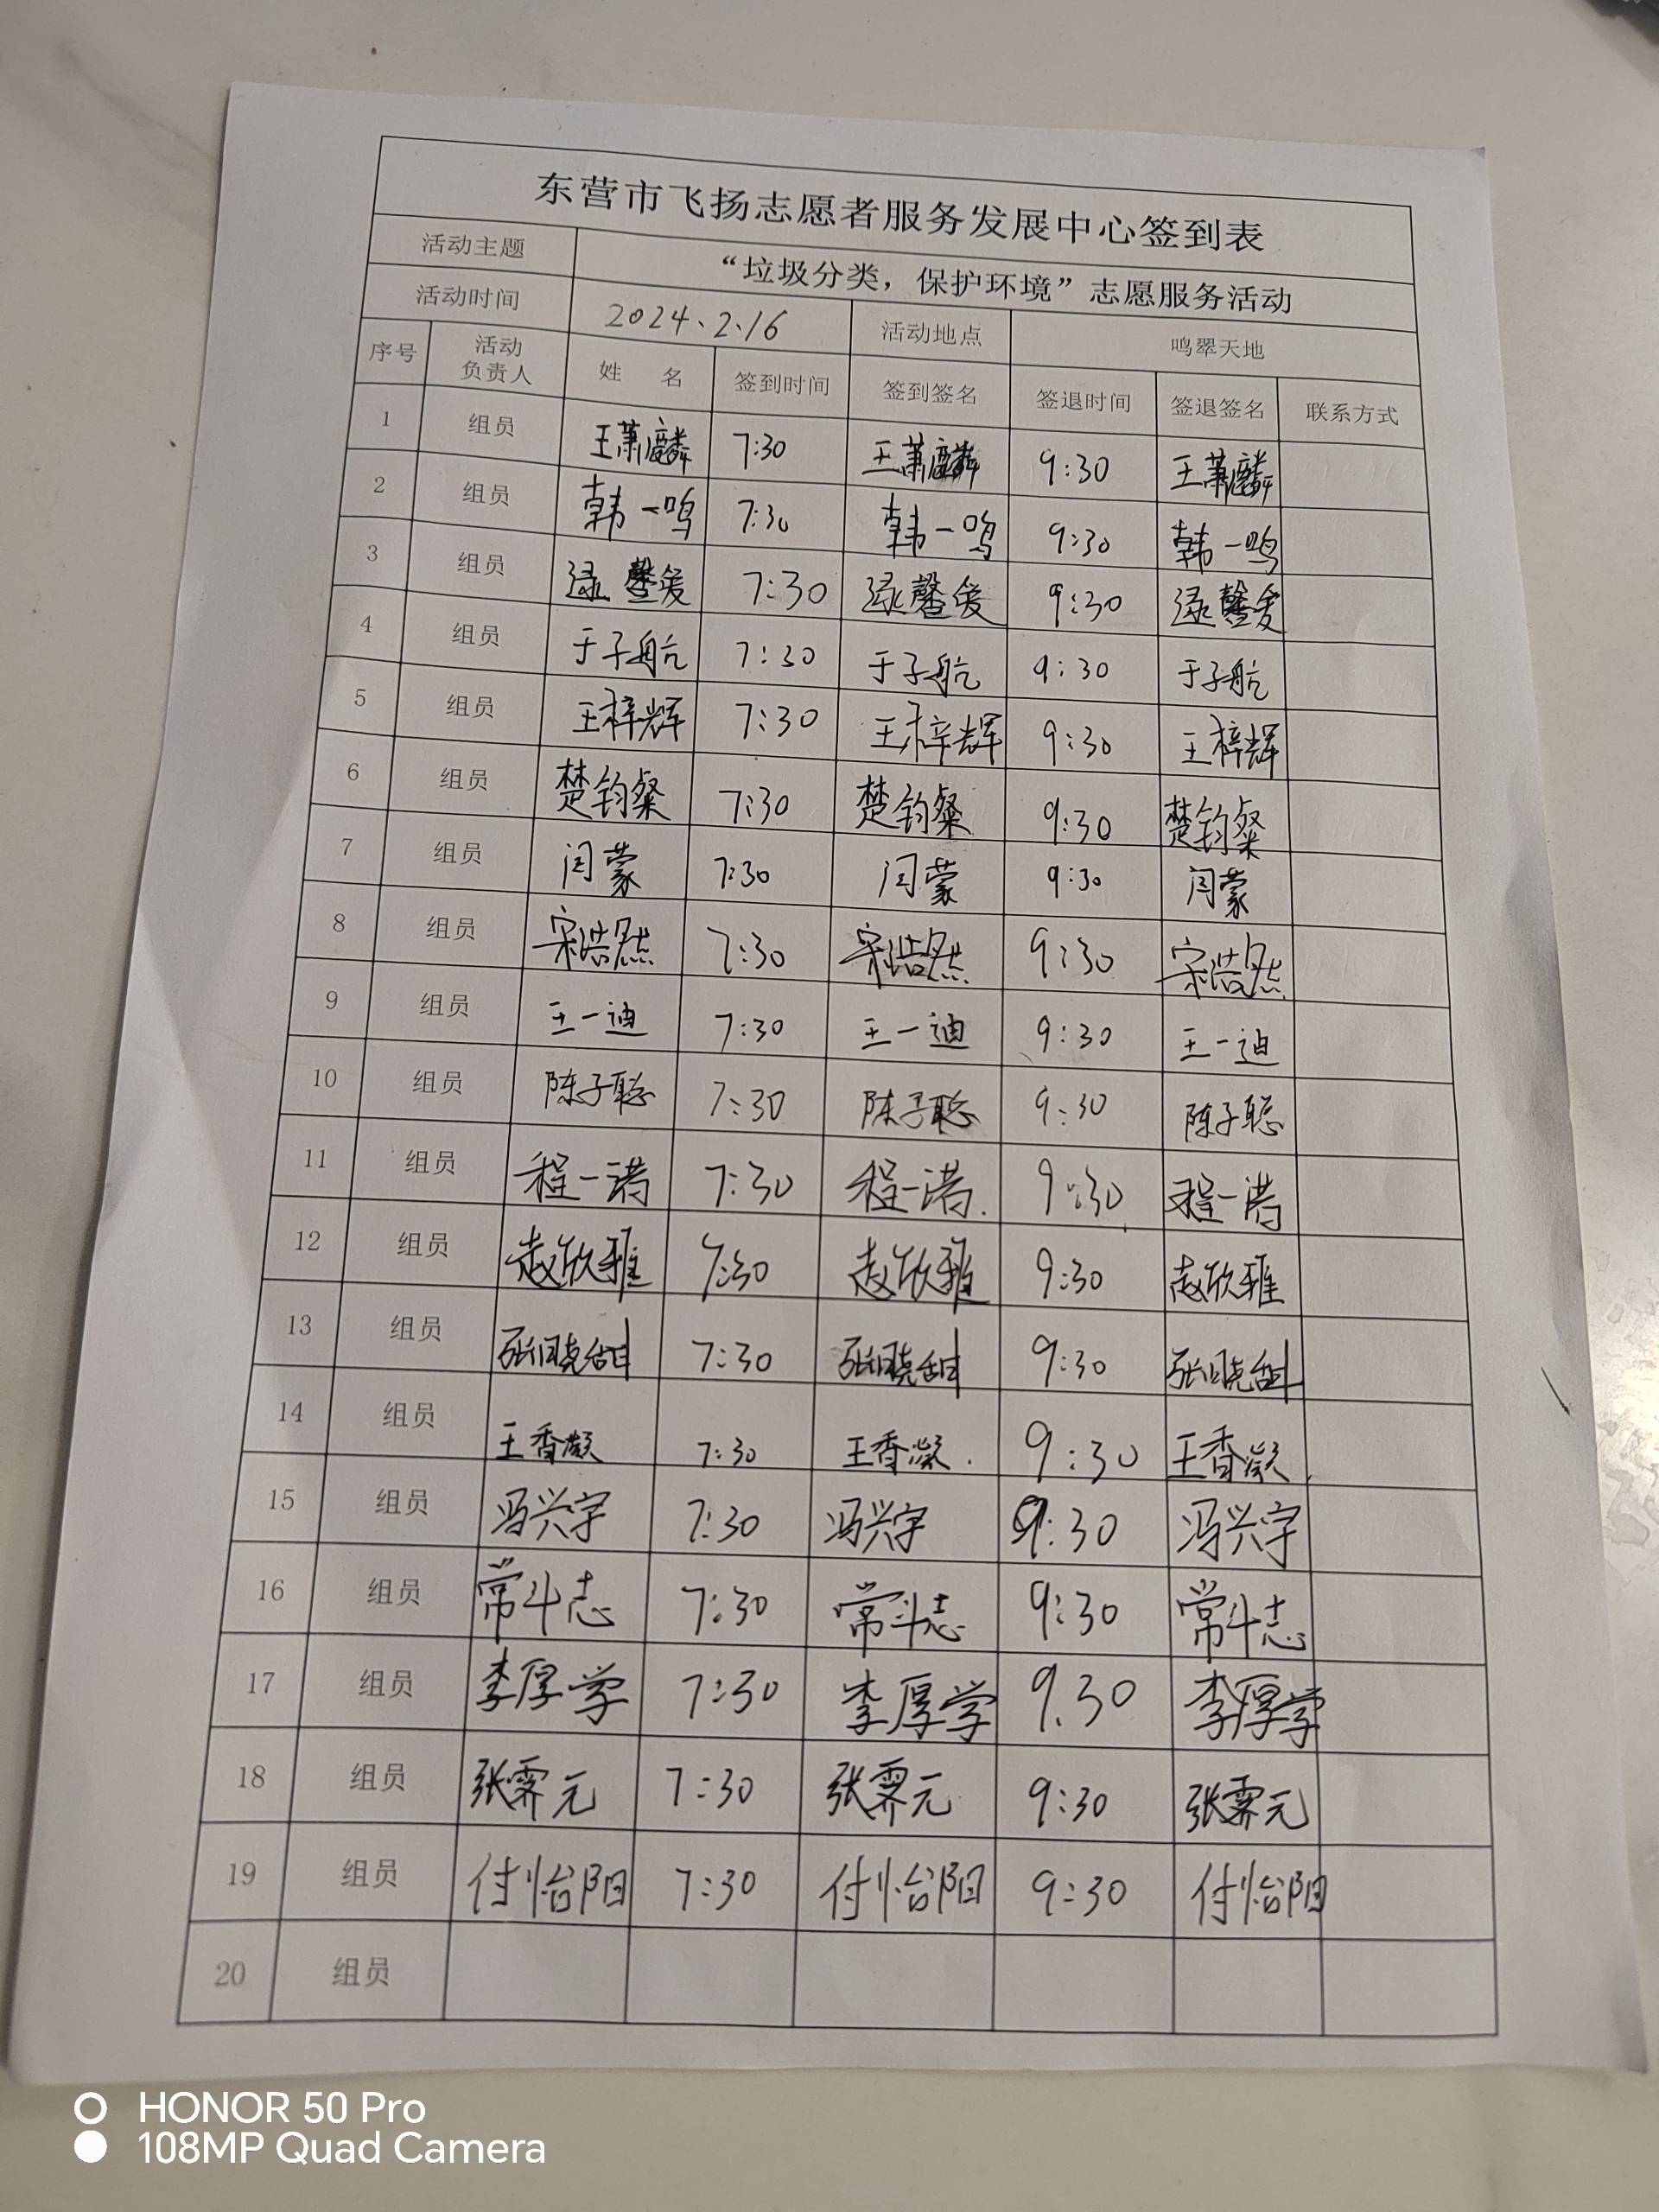 东营市飞扬志愿者服务发展中心签到表
活动主题 “垃圾分类，保护环境”志愿服务活动
活动时间 2024.2.16 活动地点 鸣翠天地
序号 活动负责人 姓 名 签到时间 签到签名 签退时间 签退签名 联系方式
1 组员 王萧麟 7:30 王萧麟 9:30 王萧麟
2 组员 韩一鸣 7:30 韩一鸣 9:30 韩一鸣
3 组员 逯馨爰 7:30 逯馨爰 9:30 逯馨爰
4 组员 于子航 7:30 于子航 9:30 于子航
5 组员 王梓辉 7:30 王梓辉 9:30 王梓辉
6 组员 楚钧粲 7:30 楚钧粲 9:30 楚钧粲
7 组员 闫蒙 7:30 闫蒙 9:30 闫蒙
8 组员 宋浩然 7:30 宋浩然 9:30 宋浩然
9 组员 王一迪 7:30 王一迪 9:30 王一迪
10 组员 陈子聪 7:30 陈子聪 9:30 陈子聪
11 组员 程一诺 7:30 程一诺 9:30 程一诺
12 组员 赵欣雅 7:30 赵欣雅 9:30 赵欣雅
13 组员 张晓甜 7:30 张晓甜 9:30 张晓甜
14 组员 王香凝 7:30 王香凝 9:30 王香凝
15 组员 冯兴宇 7:30 冯兴宇 9:30 冯兴宇
16 组员 常斗志 7:30 常斗志 9:30 常斗志
17 组员 李厚学 7:30 李厚学 9.30 李厚学
18 组员 张霁元 7:30 张霁元 9:30 张霁元
19 组员 付怡阳 7:30 付怡阳 9:30 付怡阳
20 组员
HONOR 50 Pro
108MP Quad Camera